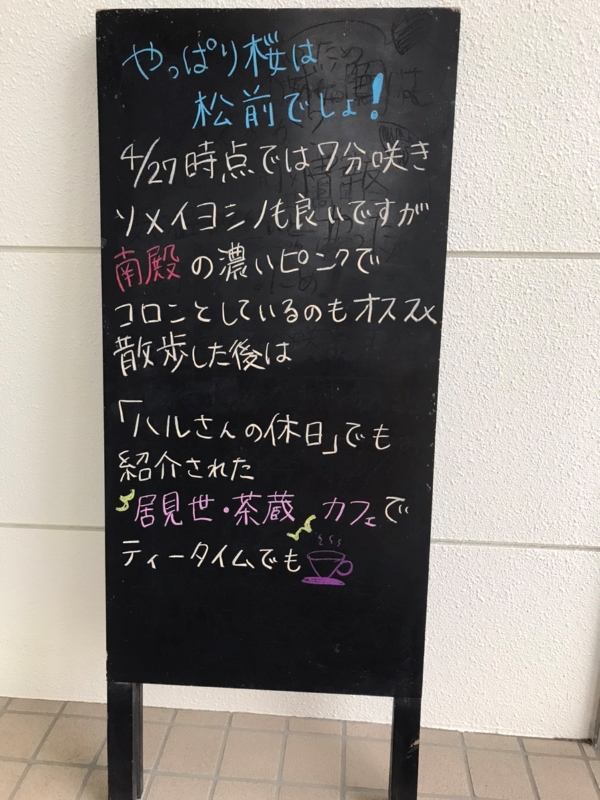 やっぱり桜は
松前でしょ!
4/27時点では7分咲き
ソメイヨシノも良いですが
南殿の濃いピンクで
コロンとしているのもオススメ
散歩した後は
「ハルさんの休日」でも
紹介された
居見世・茶蔵 カフェで
ティータイムでも